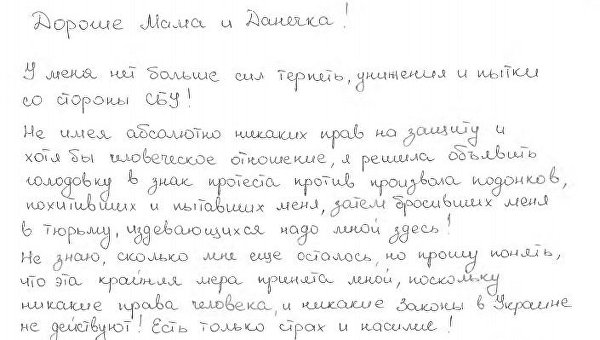 Дороше Мама и Данечка!
У меня нет больше сил терпеть, унижения и пытки
со стороны СБУ!
Не имея абсолютно никаких прав на защиту и
хотя бы человеческое отношение, я решила объявить
голодовку в знак протеста против произвола подонков,
похитивших и пытавших меня, затем бросивших меня
в тюрьму, издевающихся надо мной здесь!
Не знаю, сколько мне еще осталось, но прошу понять,
что эта крайняя мера принята мной, поскольку
никакие права человека, и никакие Законы в Украине
не действуют! Есть только страх и насилие!